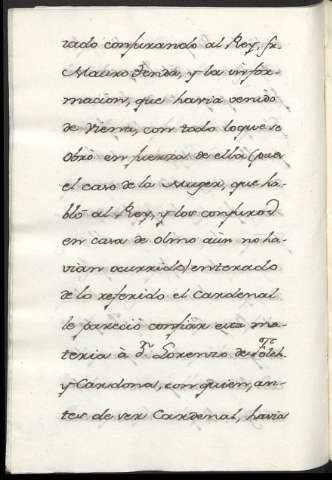 tado conjurando al Rey, fr.
Mauro Tenda, y la infor-
macion, que havia venido
de Viena, con todo lo que se
obró en fuerza de ella (pues
el caso de la Muger, que ha-
bló al Rey, y los conjuros
en casa de Olmo aùn no ha-
vian ocurrido) enterado
de lo referido el Cardenal
le pareció confiar esta ma-
teria à Dn. Lorenzo de Folch
y Cardona, con quien, an-
tes de ver Cardenal, havia